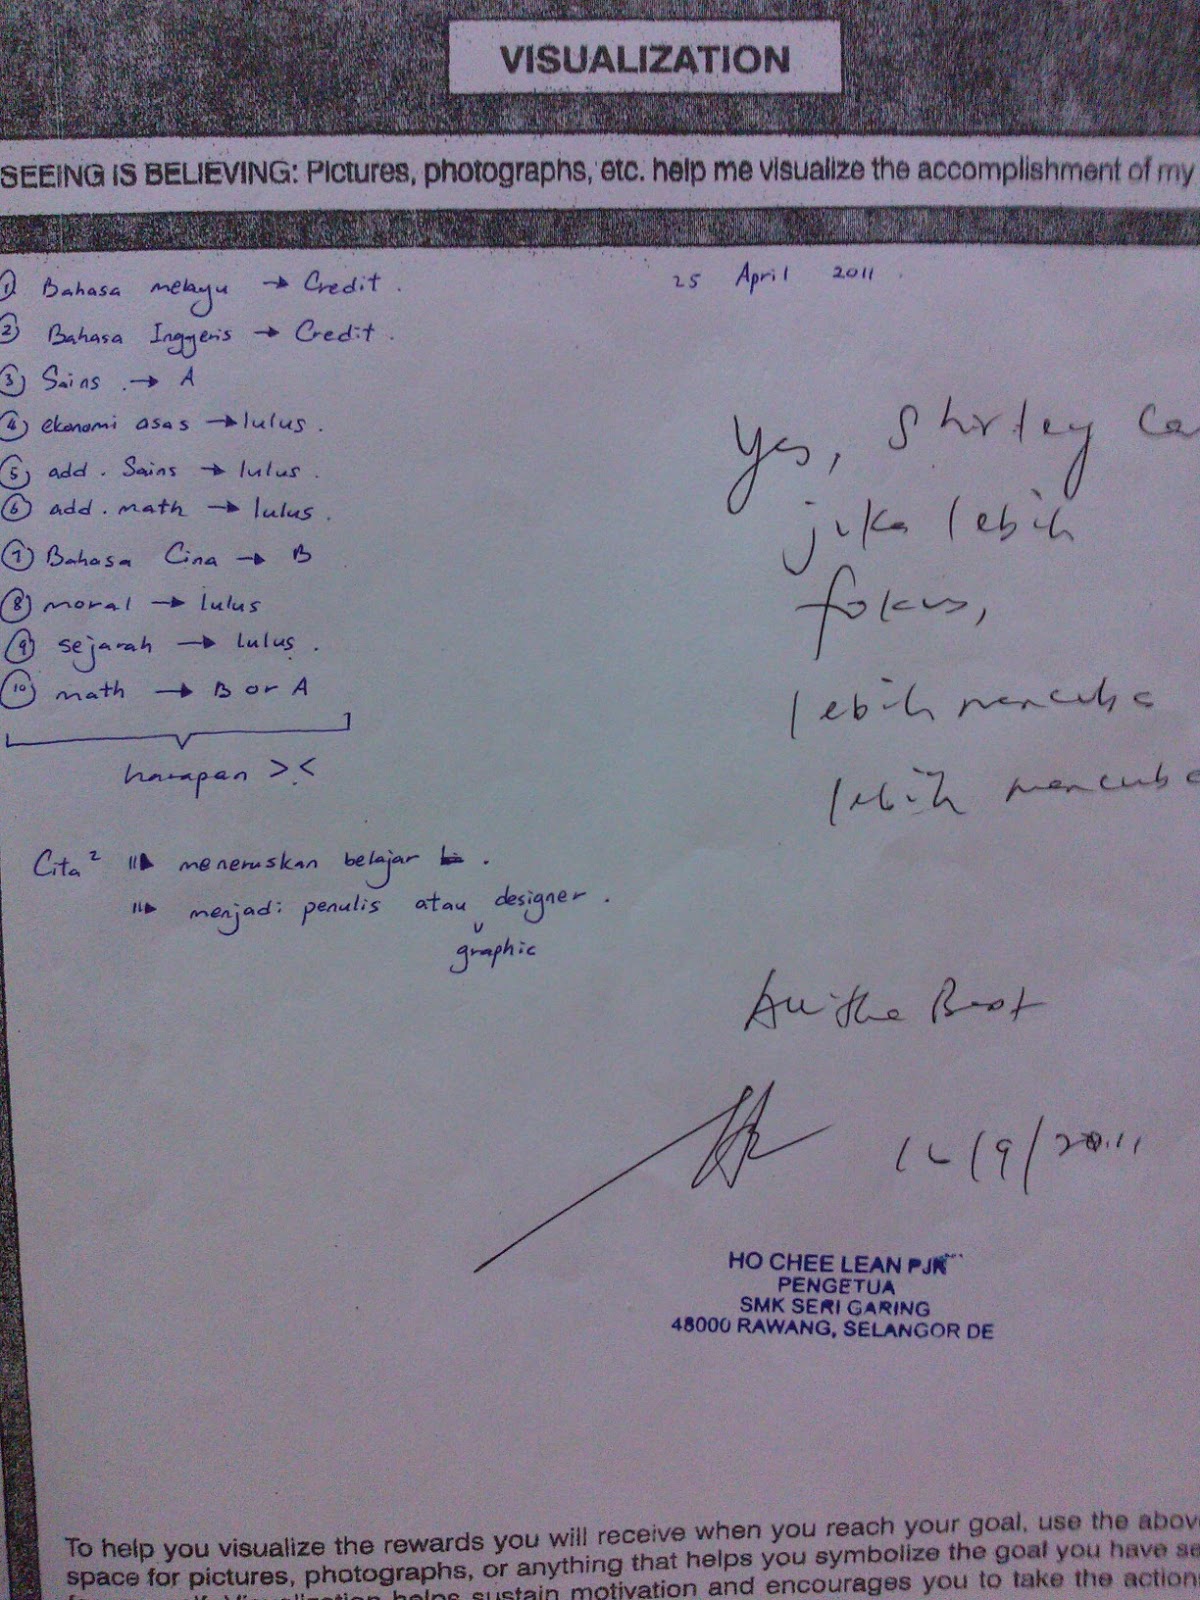 VISUALIZATION
SEEING IS BELIEVING: Pictures, photographs, etc. help me visualize the accomplishment of my
25 April 2011.
① Bahasa melayu → Credit.
② Bahasa Inggeris → Credit.
③ Sains → A
④ ekonomi asas → lulus.
⑤ add. Sains → lulus.
⑥ add. math → lulus.
⑦ Bahasa Cina → B
⑧ moral → lulus
⑨ sejarah → lulus.
⑩ math → B or A
harapan >.<
Cita² meneruskan belajar.
menjadi penulis atau designer.
graphic
Yes, Shirley
jika lebih
fokus,
lebih mencuba
lebih mencuba
All the Best
/9/2011
HO CHEE LEAN PJK
PENGETUA
SMK SERI GARING
48000 RAWANG, SELANGOR DE
To help you visualize the rewards you will receive when you reach your goal, use the above
space for pictures, photographs, or anything that helps you symbolize the goal you have
Visualization helps sustain motivation and encourages you to take the action